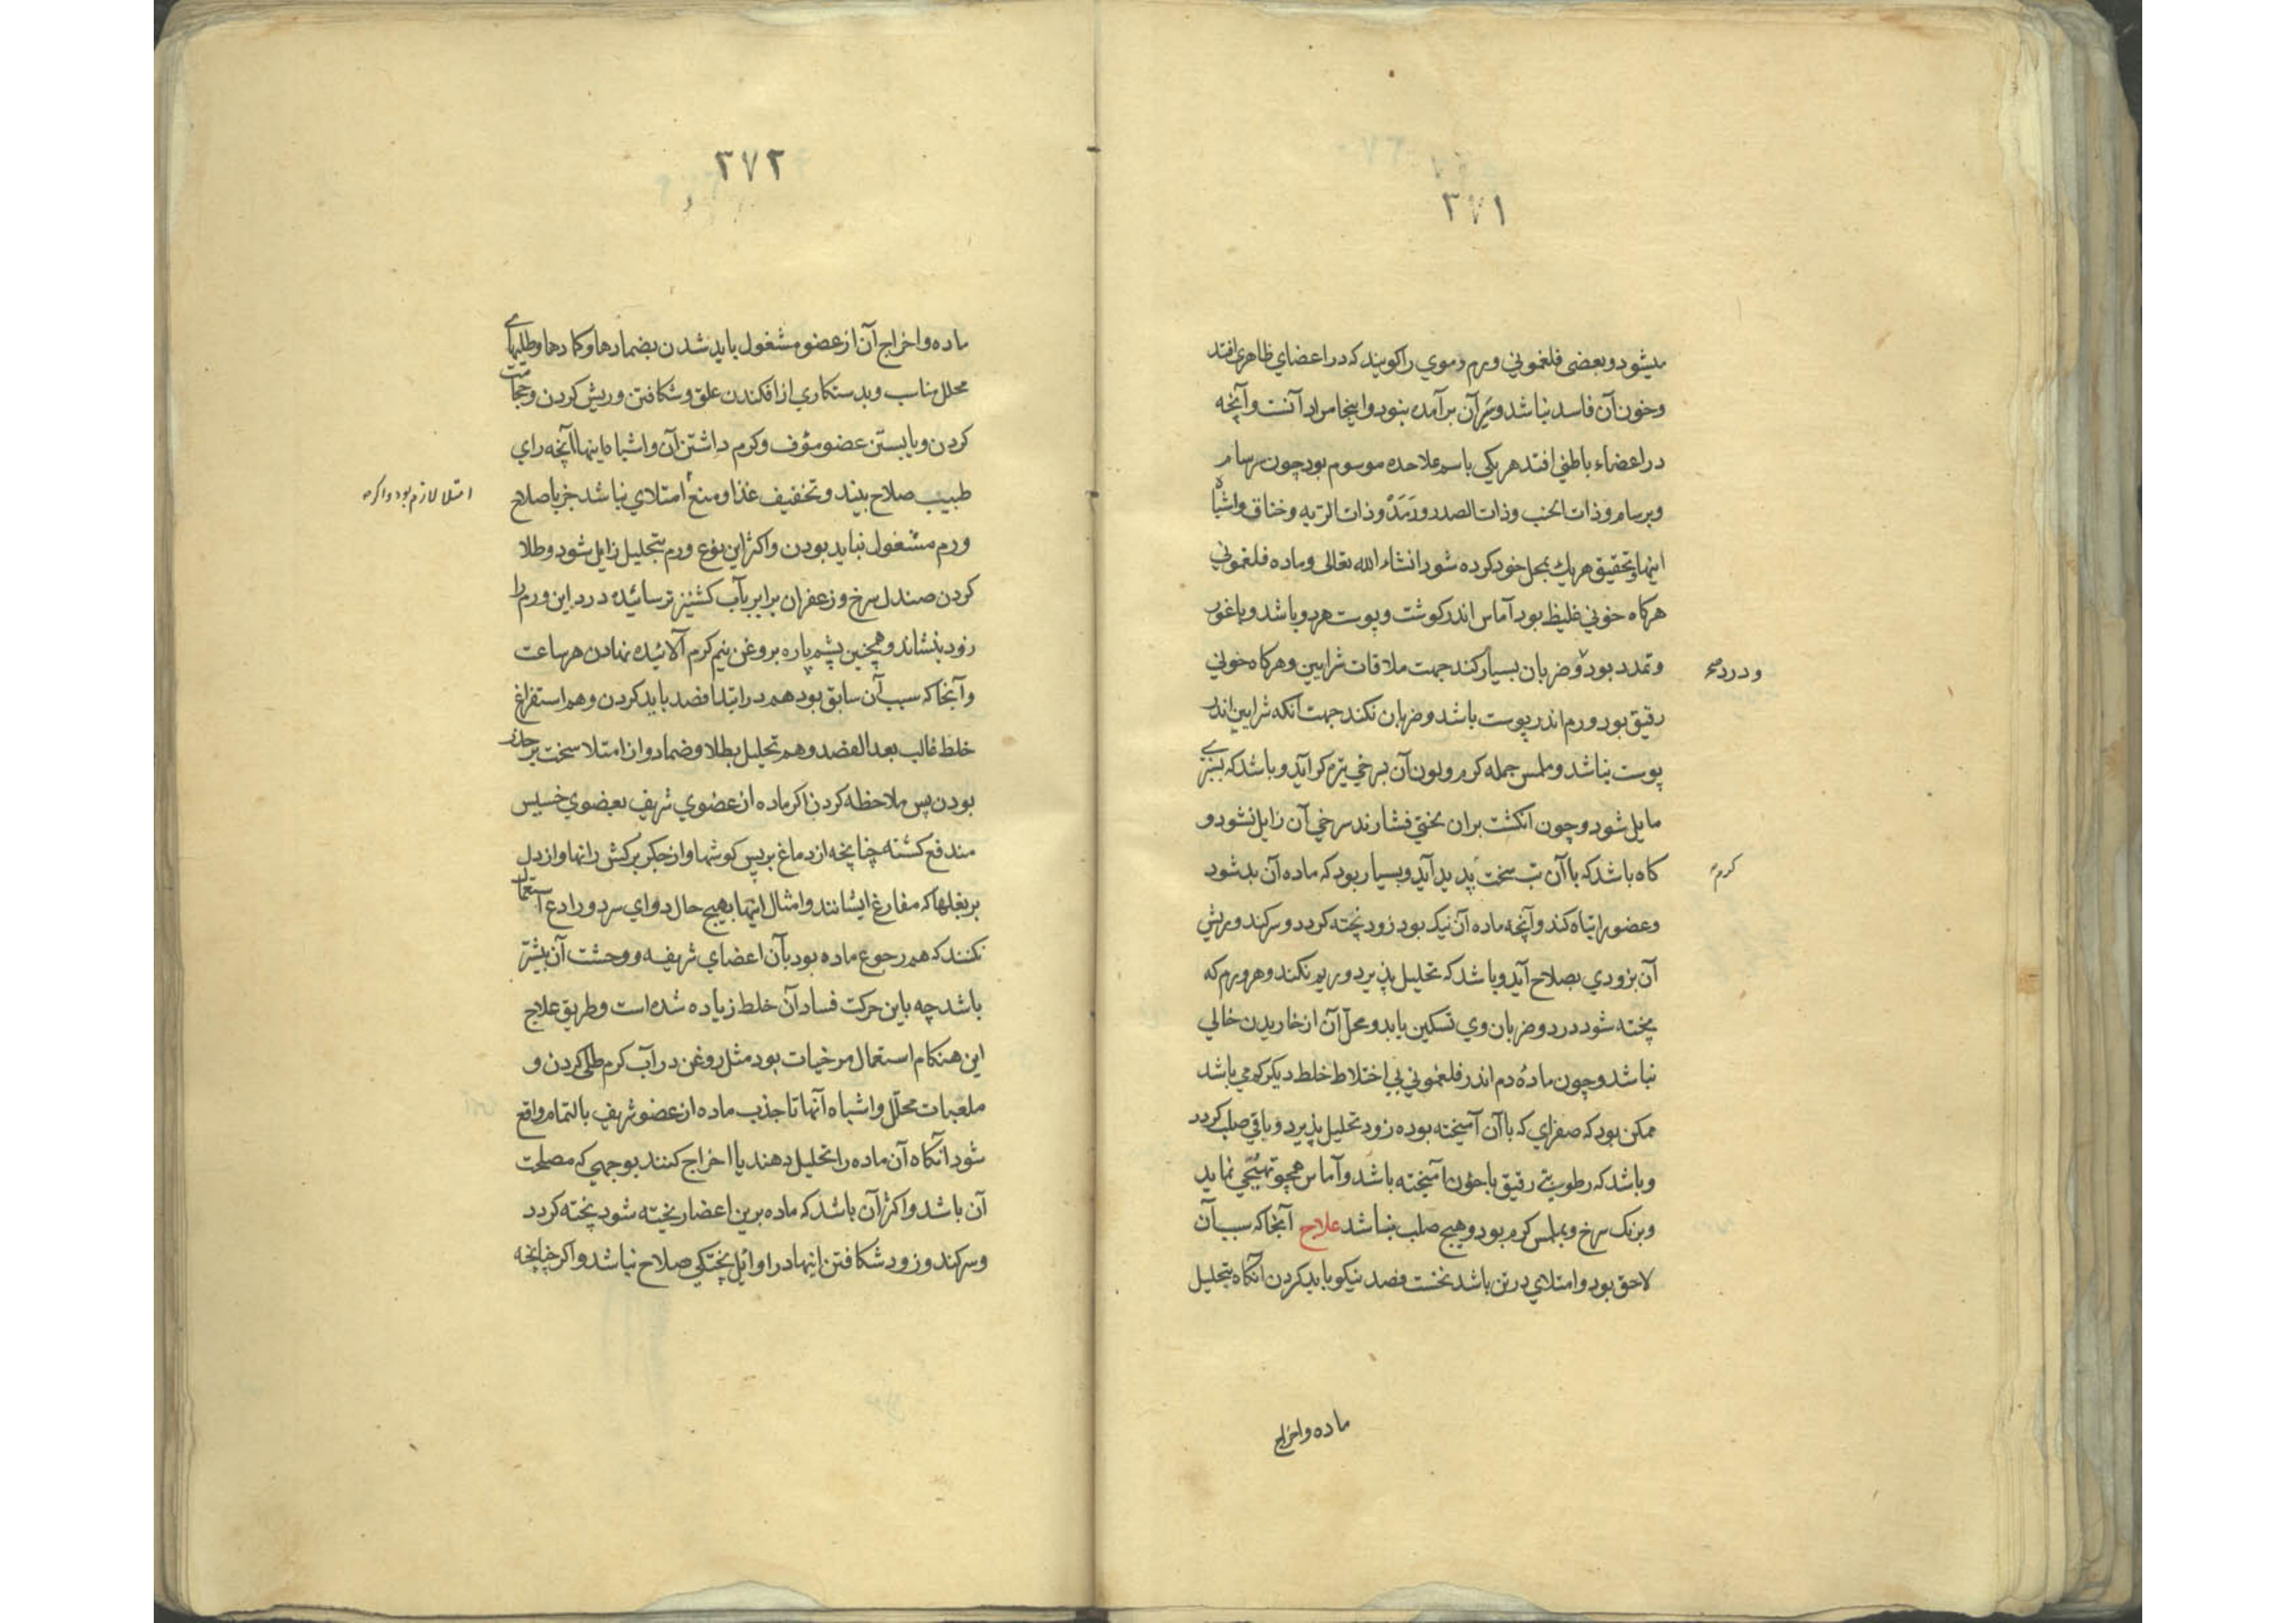 ۳۷۱
میشود و بعضی فلغمونی ورم دموي را کویند که در اعضاي ظاهری افتد
وخون آن فاسد نباشد و سَرِ آن برآمده بنود و اینجا مراد آنست و آنچه
در اعضاء باطنی افتد هر یکی باسم علاحده موسوم بود چون سرسام
وبرسام وذات الجنب وذات الصدر و رَمَدْ وذات الریه وخناق واشباه
اینها و تحقیق هر یك بمحل خود کرده شود انشاء الله تعالی وماده فلغمونی
هرکاه خونی غلیظ بود آماس اندر کوشت و پوست هر دو باشد و با غور
وتمدد بود وضربان بسیار کند جهت ملاقات شرایین وهرکاه خونی
ودرد صح
رقیق بود ورم اندر پوست باشد وضربان نکند جهت آنکه شرایین اندر
پوست نباشد و ملمس جمله کرم ولون آن بسرخی تیرم کراید و باشد که بسبزي
مایل شود و چون انکشت بران بختی فشارند سرخی آن زایل نشود و
کاه باشد که با آن تب سخت پدید آید و بسیار بود که ماده آن بد شود
کرم
وعضو را تباه کند و آنچه ماده آن نیک بود زود پخته کردد و سر کند و ریش
آن بزودي بصلاح آید و باشد که تحلیل پذیرد و ریم نکند وهر ورم که
پخته شود درد و ضربان وي تسکین یابد و محل آن از خاریدن خالی
نباشد و چون مادهٔ دم اندر فلغمونی بی اختلاط خلط دیکر کم می باشد
ممکن بود که صفراي که با آن آمیخته بوده زود تحلیل پذیرد و باقی صلب کردد
وباشد که رطوبتي رقیق با خون آمیخته باشد و آماس همچو تهیّجی نماید
وبرنک سرخ و بملمس کرم بود وهیچ صلب نباشد علاج آنجا که سبب آن
لاحق بود و امتلاي در تن باشد نخست فصد نیکو باید کردن آنکاه بتحلیل
ماده واخراج
۳۷۲
ماده واخراج آن از عضو مشغول باید شدن بضمادها وکمادها وطلیهاي
محلل مناسب و بدستکاري از افکندن علق و شکافتن و ریش کردن و حجامت
کردن و یا بستن عضو مؤف و کرم داشتن آن واشباه اینها آنچه راي
طبیب صلاح بیند و تخفیف غذا و منع امتلاي نباشد جز باصلاح
امتلا لازم بود واکر
ورم مشغول نباید بودن واکثر این نوع ورم بتحلیل زایل شود وطلا
کردن صندل سرخ و زعفران برابر بآب کشنیز تر سائیده درد این ورم را
زود بنشاند و همچنین پشم پاره بروغن نیم کرم آلائیده نهادن هر ساعت
وآنجا که سبب آن سابق بود هم در ابتدا فصد باید کردن و هم استفراغ
خلط غالب بعد الفصد وهم تحلیل بطلا وضماد و از امتلا سخت بر حذر
بودن پس ملاحظه کردن اکر ماده از عضوي شریف بعضوي خسیس
مندفع کشته چنانچه از دماغ بر پس کوشها و از جکر بر کش رانها و از دل
بر بغلها که مفارغ ایشانند و امثال اینها بهیچ حال دواي سرد و رادع استعمال
نکنند که هم رجوع ماده بود بآن اعضاي شریفه و وحشت آن بیشتر
باشد چه باین حرکت فساد آن خلط زیاده شده است و طریق علاج
این هنکام استعمال مرخیات بود مثل روغن در آب کرم طلی کردن و
ملعبات محلّل واشباه آنها تا جذب ماده از عضو شریف بالتمام واقع
شود آنکاه آن ماده را تحلیل دهند یا اخراج کنند بوجهی که مصلحت
آن باشد واکثر آن باشد که ماده برین اعضا ریخته شود پخته کردد
وسر کند و زود شکافتن اینها در اوایل پختکی صلاح نباشد واکر چنانچه